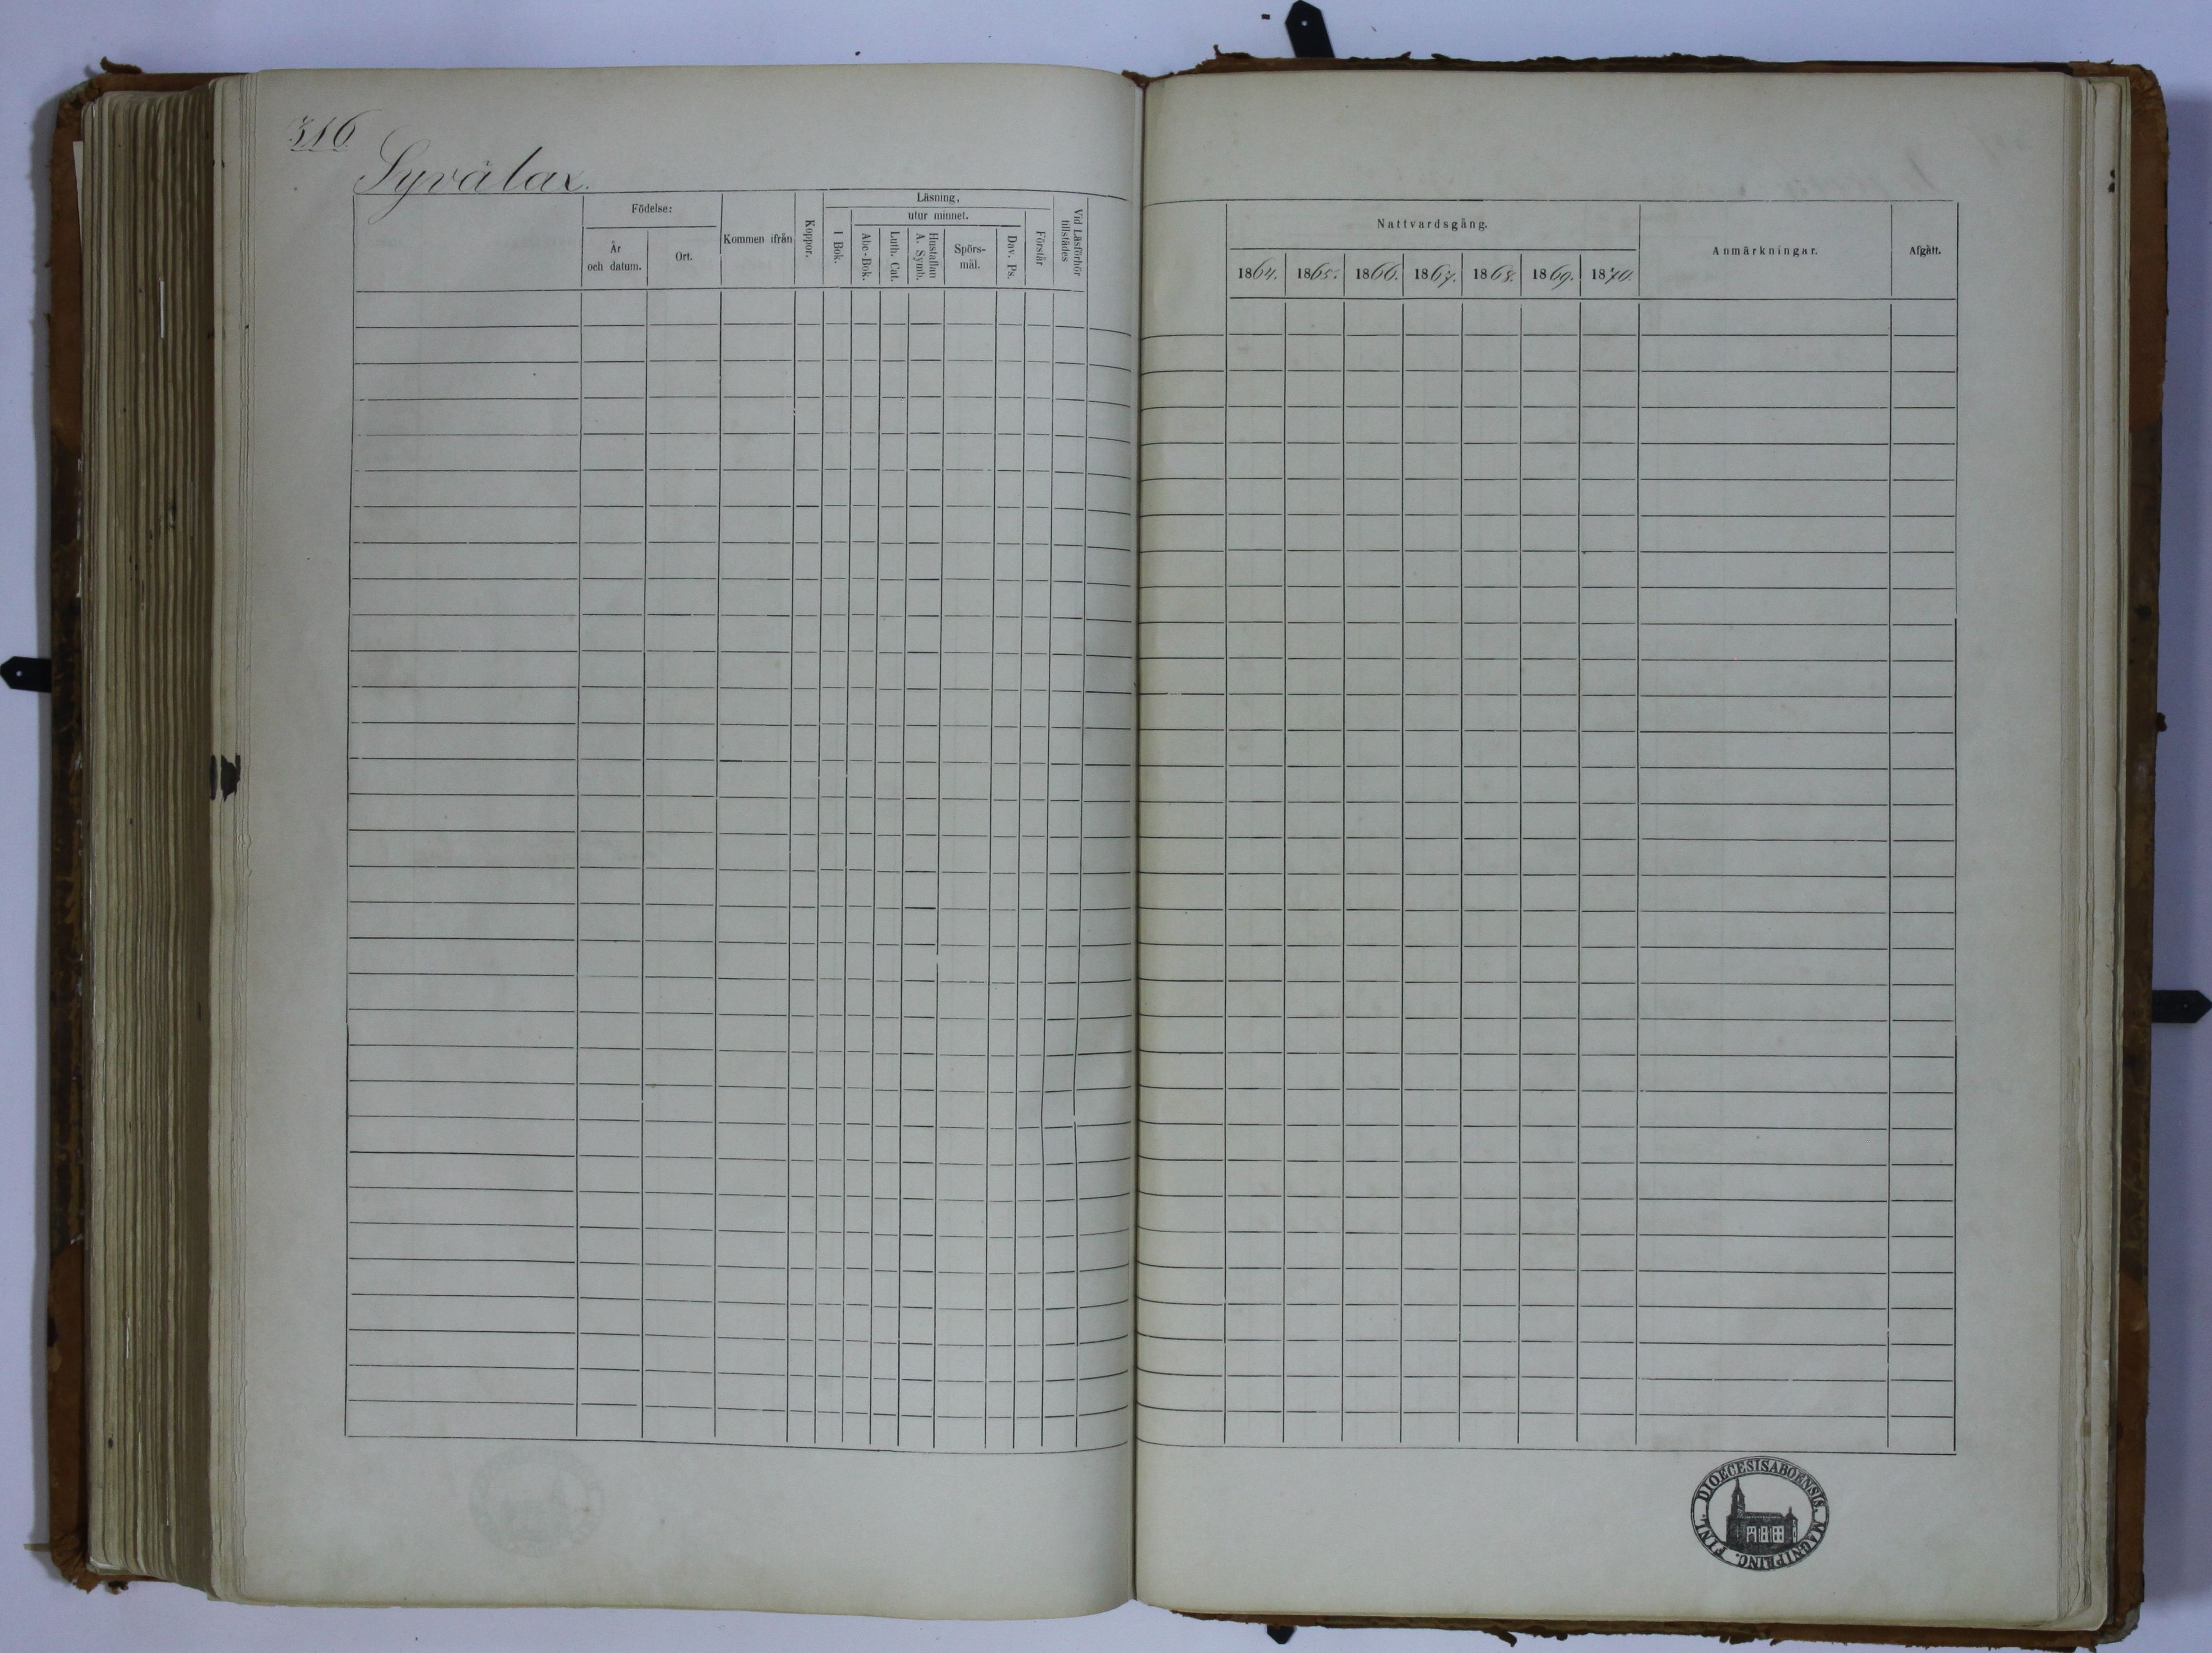 316
Syvälax.
Födelse:
År
och datum.
Ort.
Kommen ifrån
Koppor.
Läsning,
utur minnet.
I Bok.
Abc-Bok.
Luth. Cat.
Hustaflan
A. Symb.
Spörs-
mål.
Dav. Ps.
Förstår
Vid Läsförhör
tillstädes
Nattvardsgång.
1864. 1865. 1866. 1867. 1868. 1869. 1870.
Anmärkningar.
Afgått.
DIOECESIS ABOENSIS. MAGNI PRINC. FINL.